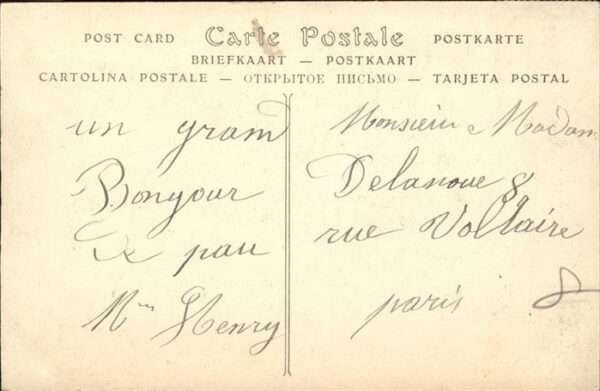 POST CARD Carte Postale POSTKARTE
BRIEFKAART — POSTKAART
CARTOLINA POSTALE — ОТКРЫТОЕ ПИСЬМО — TARJETA POSTAL
un grand
Bonjour
de pau
Mme Henry
Monsieur e Madam
Delanoue 8
rue Voltaire
paris 8